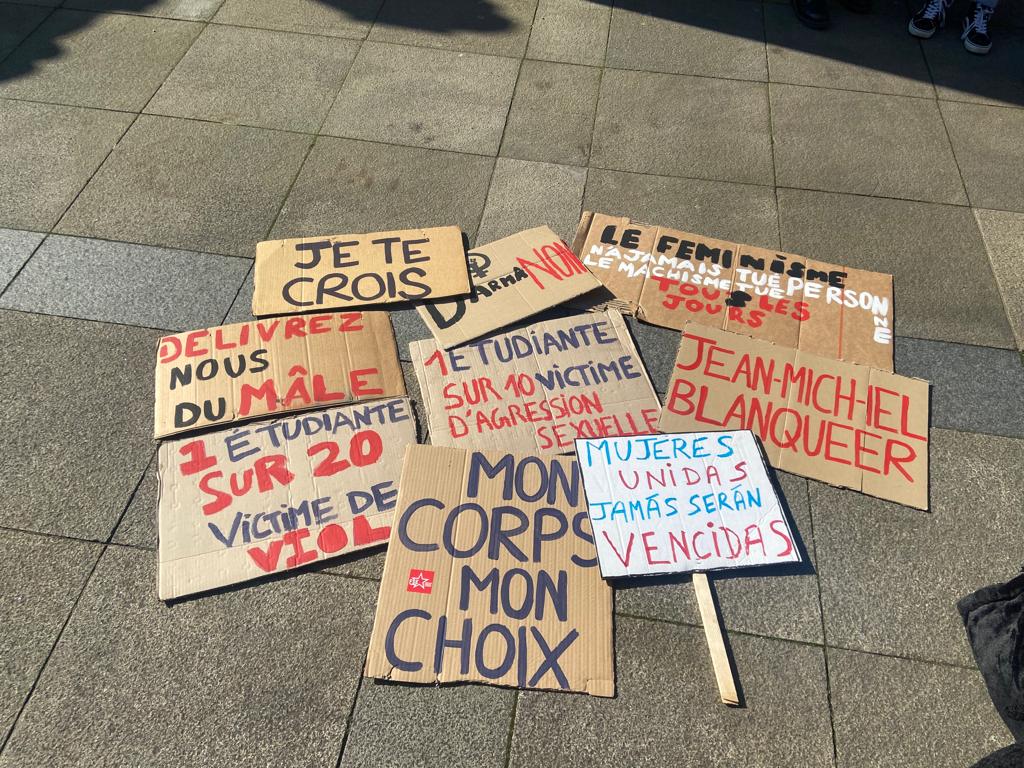 JE TE
CROIS
D'ARMA NON
LE FEMINISME
N'A JAMAIS TUÉ PERSONNE
LE MACHISME TUE
TOUS LES
JOURS
DÉLIVREZ
NOUS
DU MÂLE
1 ÉTUDIANTE
SUR 10 VICTIME
D'AGRESSION
SEXUELLE
JEAN-MICH-IEL
BLANQUEER
1 ÉTUDIANTE
SUR 20
VICTIME DE
VIOL
MON
CORPS
MON
CHOIX
MUJÉRES
UNIDAS
JAMÁS SERÁN
VENCIDAS